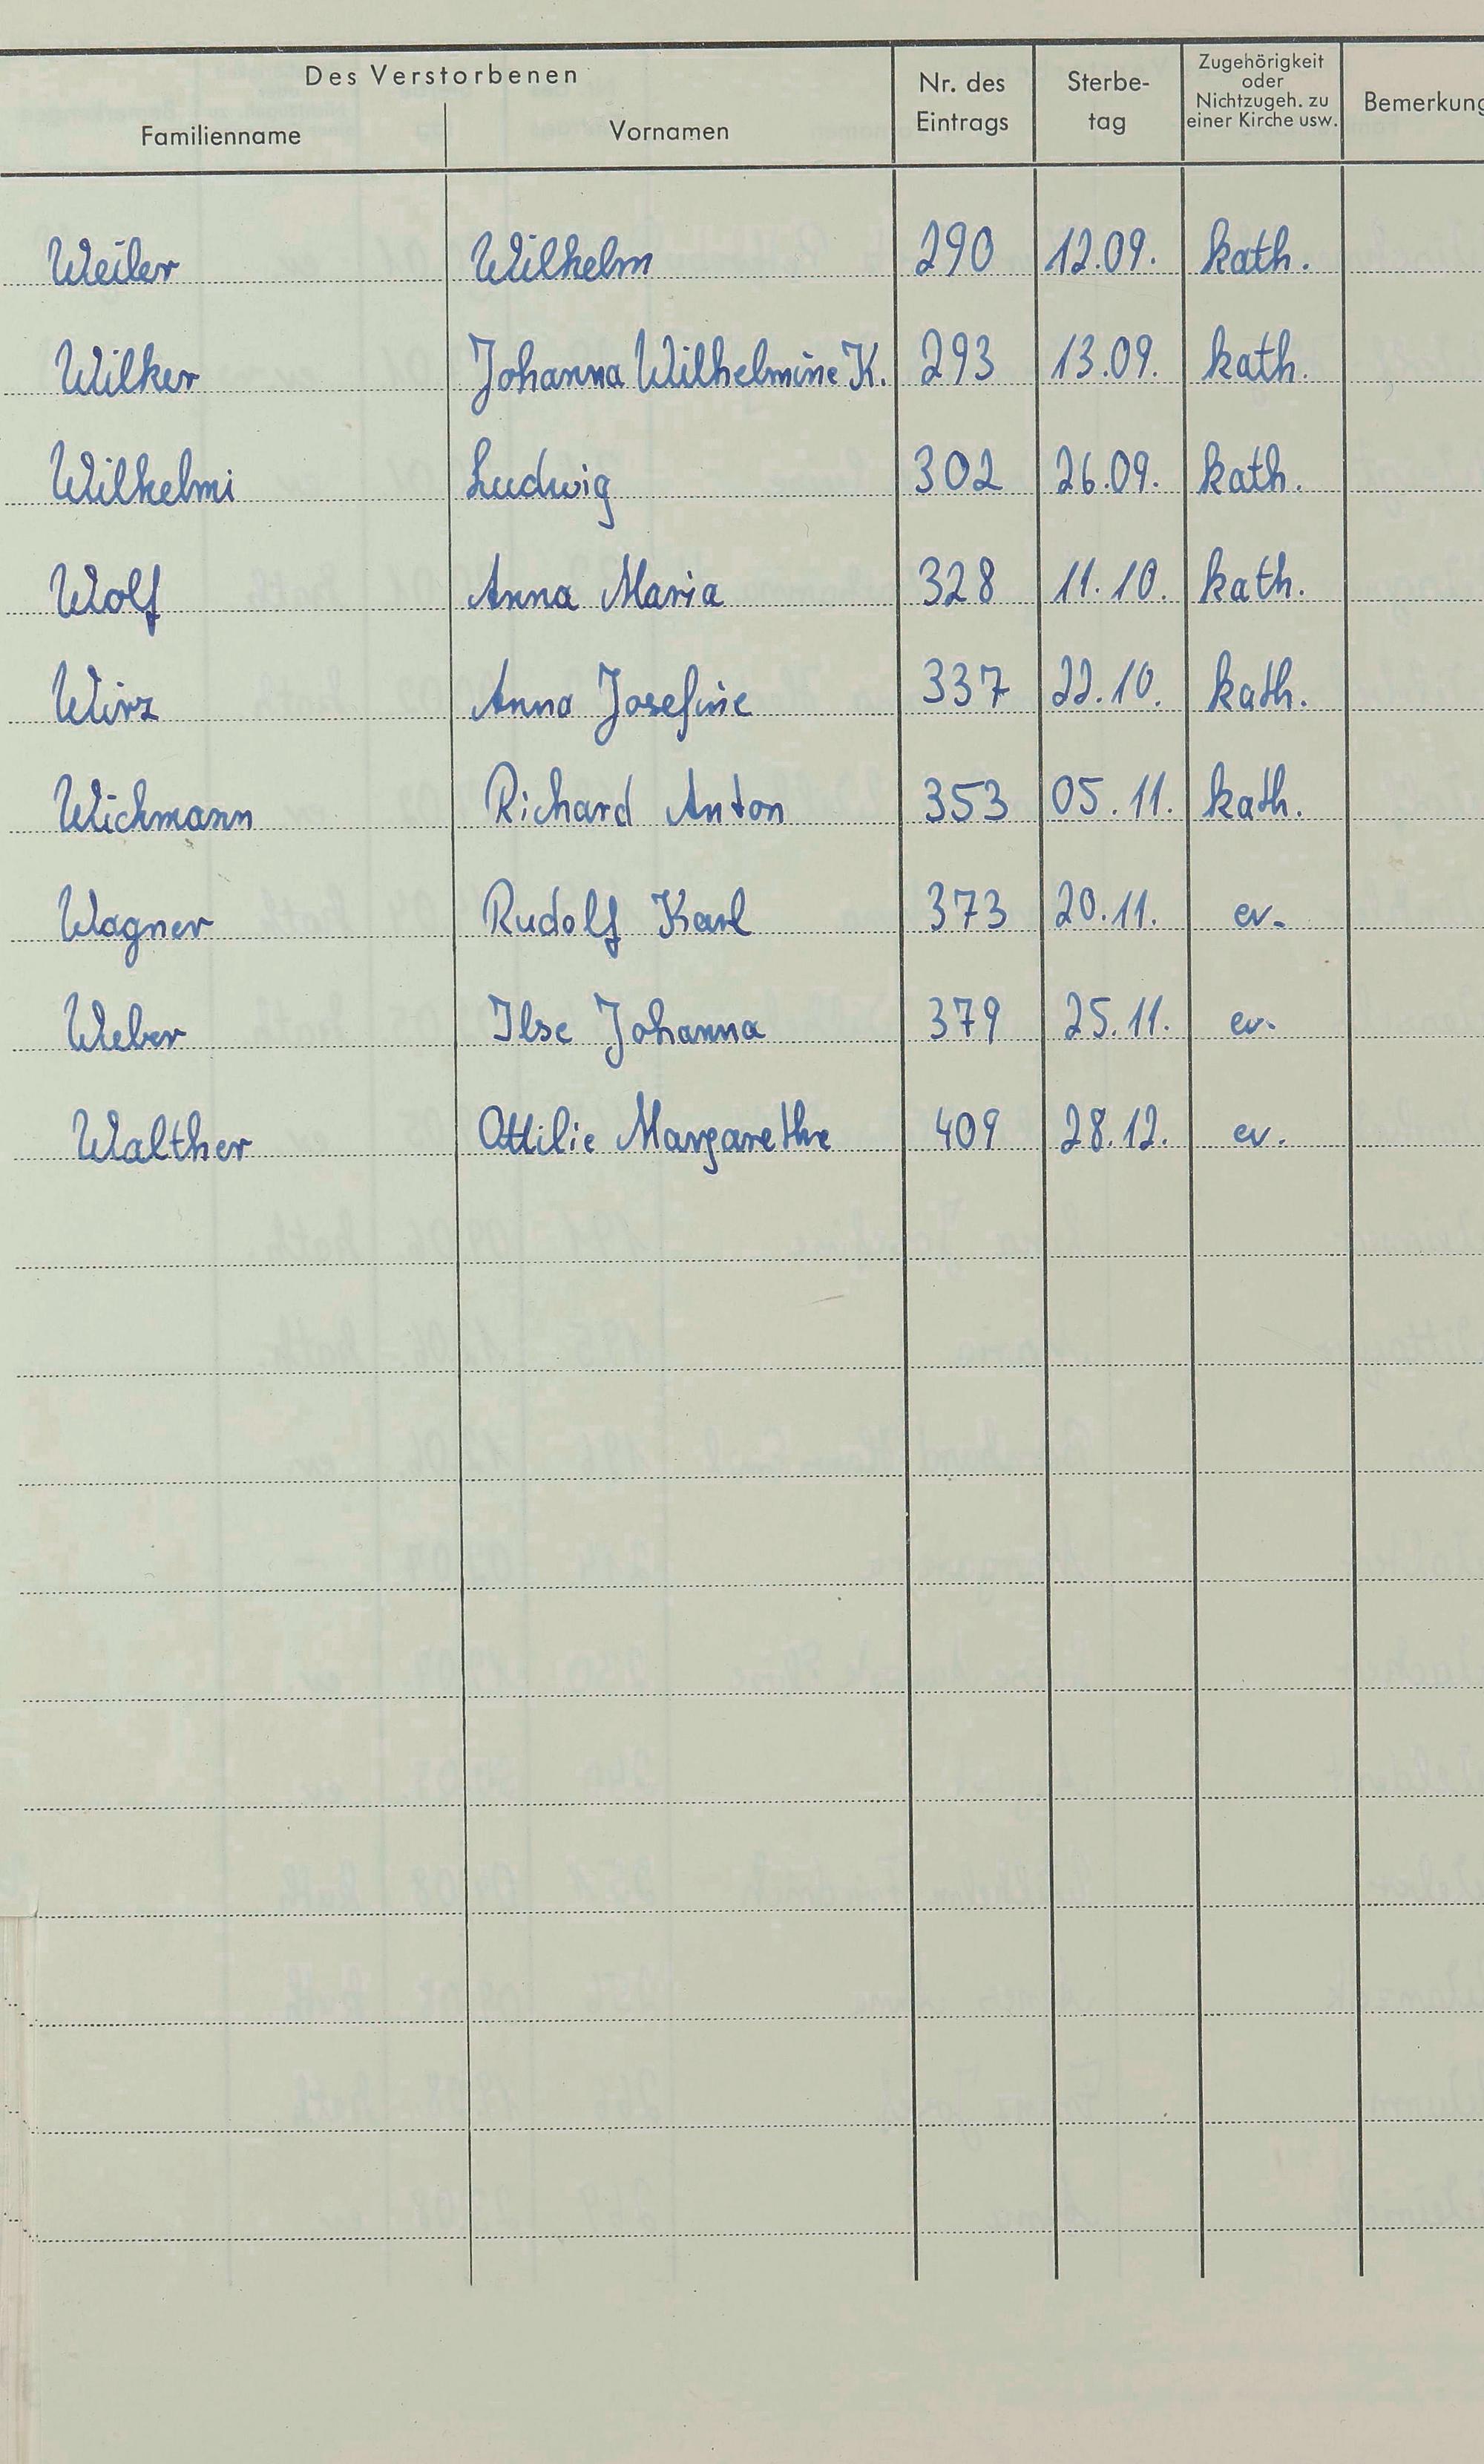 Des Verstorbenen
Familienname Vornamen Nr. des Eintrags Sterbe-tag Zugehörigkeit oder Nichtzugeh. zu einer Kirche usw. Bemerkung
Weiler Wilhelm 290 12.09. kath.
Wilker Johanna Wilhelmine K. 293 13.09. kath.
Wilhelmi Ludwig 302 26.09. kath.
Wolf Anna Maria 328 11.10. kath.
Wirz Anna Josefine 337 22.10. kath.
Wichmann Richard Anton 353 05.11. kath.
Wagner Rudolf Karl 373 20.11. ev.
Weber Ilse Johanna 379 25.11. ev.
Walther Ottilie Margarethe 409 28.12. ev.